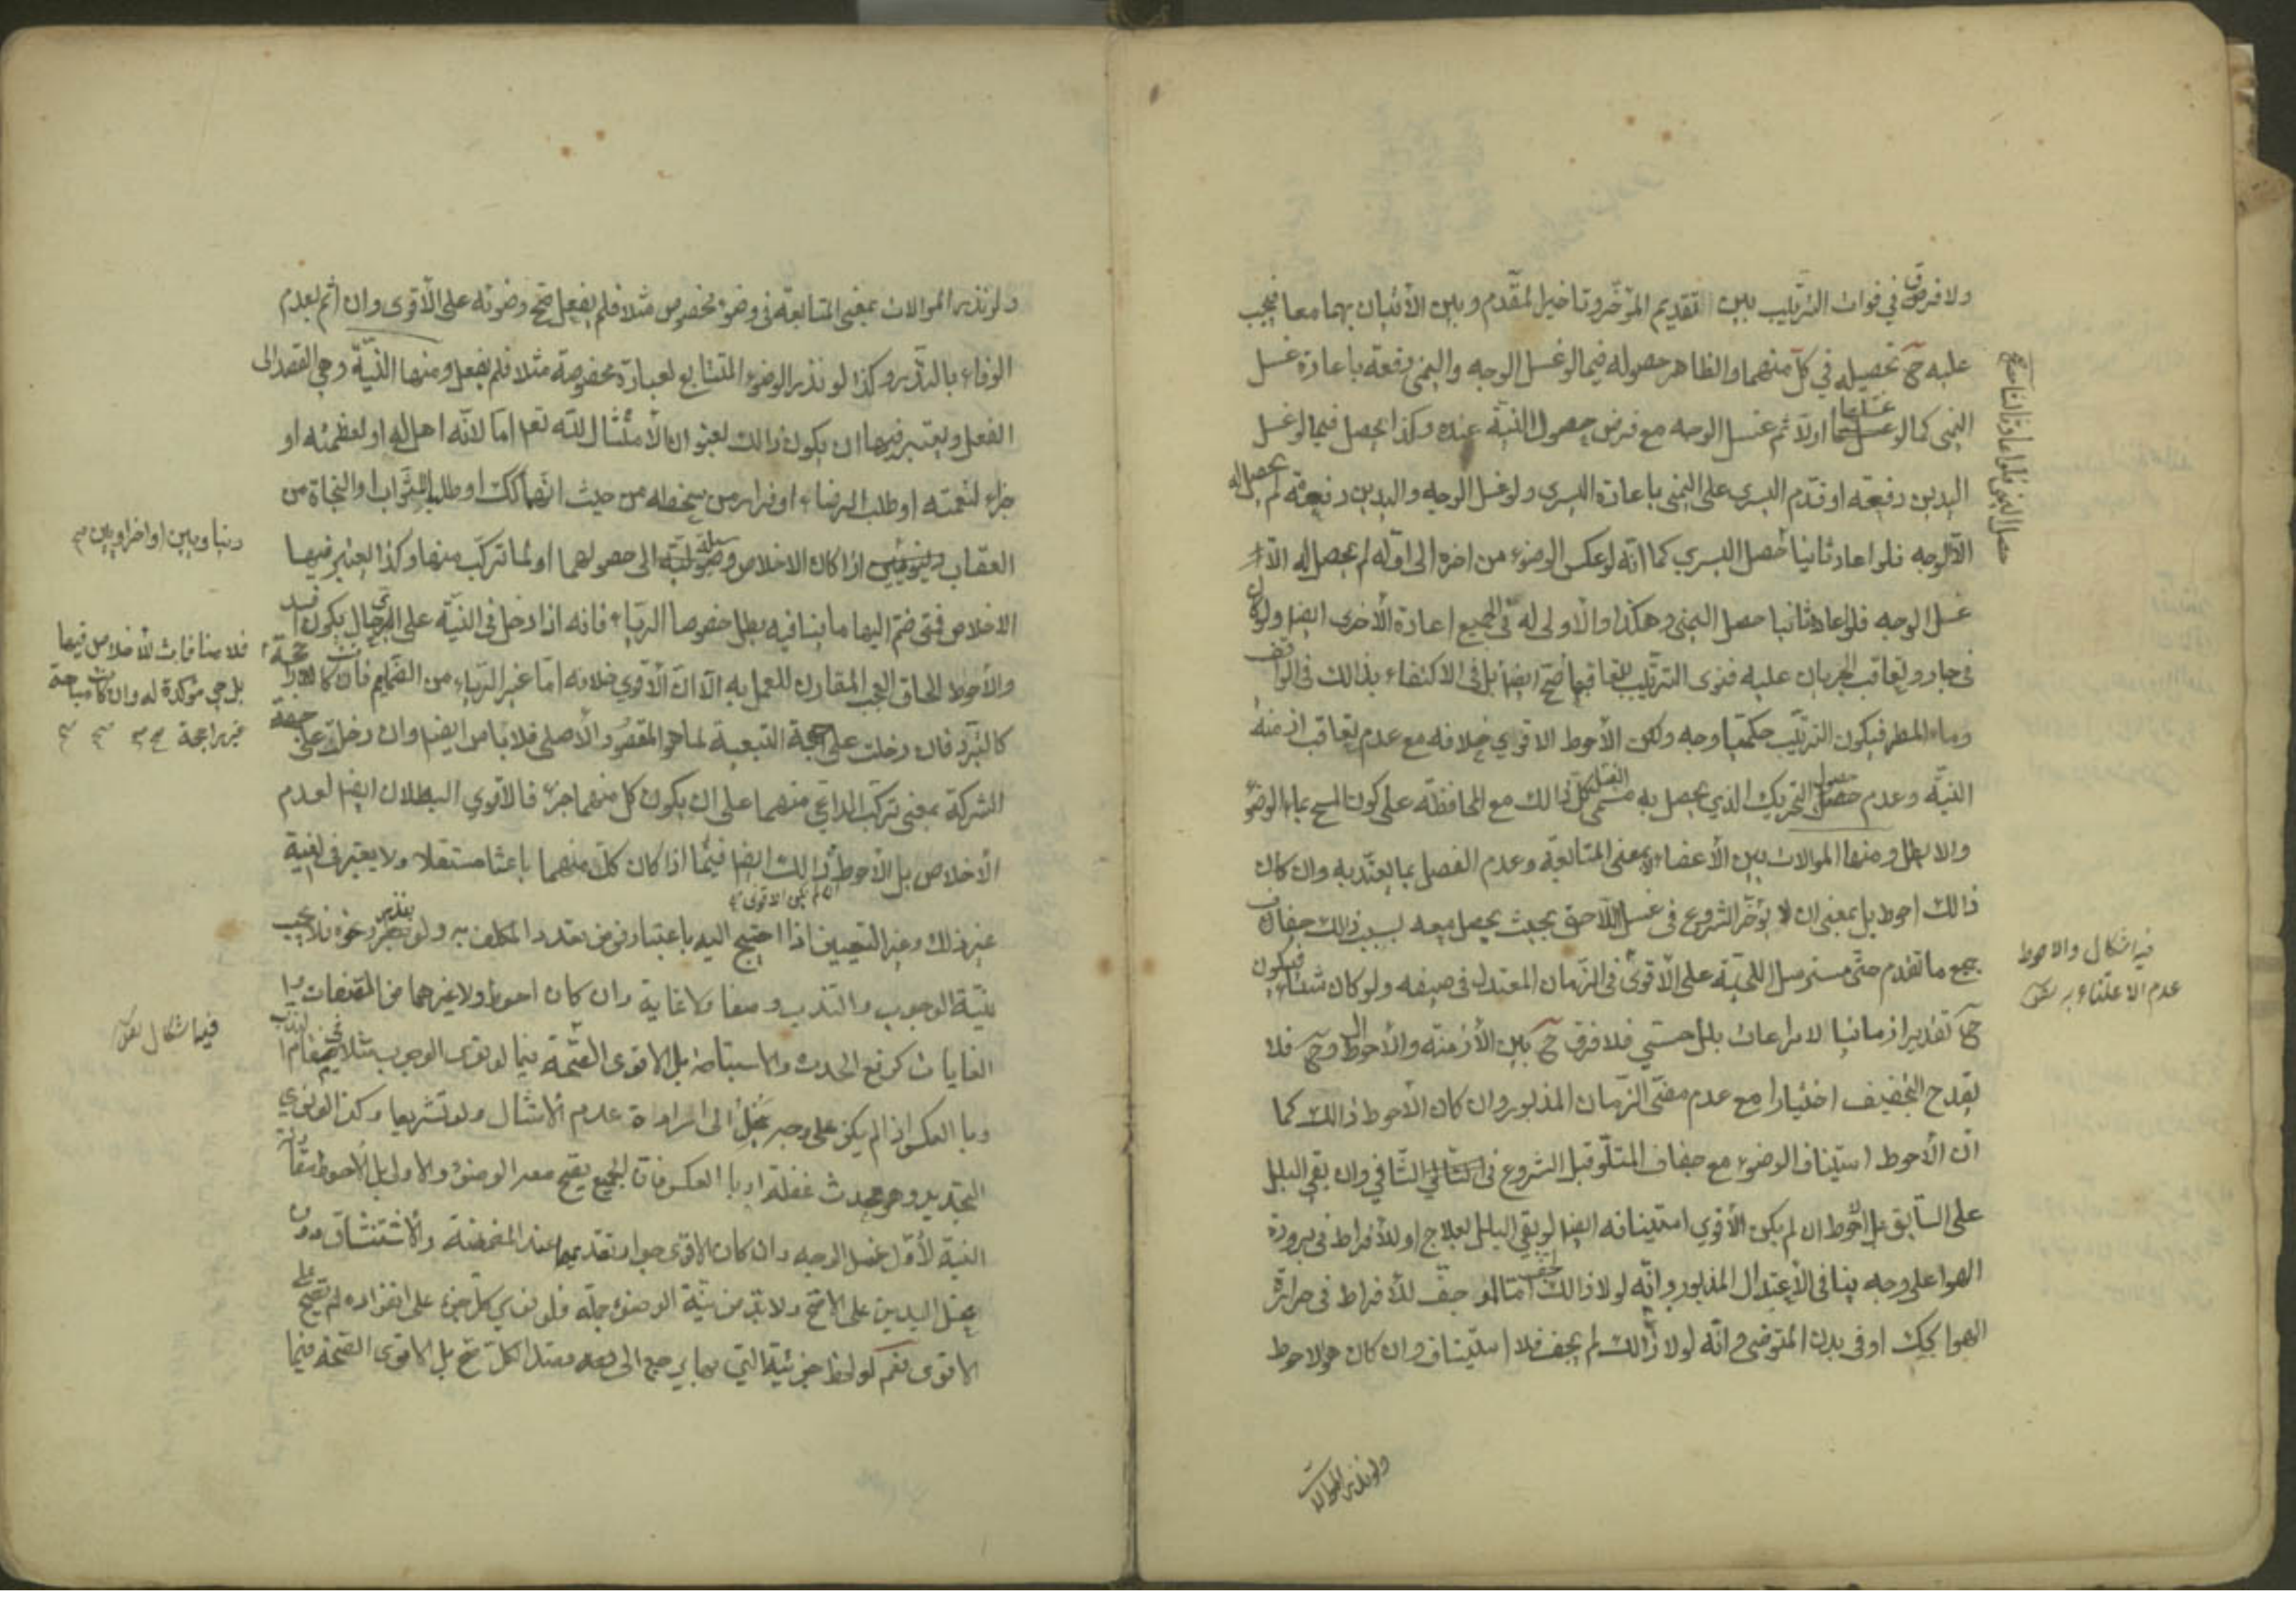 ولا فرق في فوات الترتيب بين تقديم المؤخّر وتاخير المقدّم وبين الأتيان بهما معا فيجب
عليه ح تحصيله في كلّ منهما والظاهر حصوله فيما لو غسل الوجه واليمنى دفعة باعادة غسل
اليمنى كما لو غسلها اولا ثم غسل الوجه مع فرض حصول النيّة عنده وكذا يحصل فيما لو غسل
اليدين دفعة او قدّم اليسرى على اليمنى باعادة اليسرى ولو غسل الوجه واليدين دفعة لم يحصل له
الّا الوجه فلو اعاد ثانيا حصل اليسري كما انّه لو عكس الوضوء من اخره الى اوّله لم يحصل له الّا
غسل الوجه فلو اعاد ثانيا حصل اليمنى وهكذا والأولى له في الجميع اعادة الأخرى ايضا ولو كان
في جار وتعاقب الجريان عليه فنوى الترتيب بتعاقبها صحّ ايضا بل في الاكتفاء بذالك في الواقف
وماء المطر فيكون الترتيب حكميّا وجه ولكن الأحوط الاقوي خلافه مع عدم تعاقب ازمنة
النيّة وعدم حصول التحريك الذي يحصل به مسمى الغسل كل ذالك مع المحافظة على كون المسح بماء الوضوء
والا بطل ومنها الموالات بين الأعضاء لا بمعنى المتابعة وعدم الفصل بما يعتدّ به وان كان
ذالك احوط بل بمعنى ان لا يؤخّر الشروع في غسل اللّاحق بحيث يحصل معه بسبب ذالك جفاف
جميع ما تقدم حتّى مسترسل اللحية على الأقوى في الزّمان المعتدل في صيفه ولو كان شتاء فيكون
ح تقديرا زمانيا لا مراعات بلل حسّي فلا فرق ح بين الأزمنة والأحوال وح فلا
يقدح التجفيف اختيارا مع عدم مضّى الزّمان المذبور وان كان الأحوط ذالك كما
ان الأحوط استيناف الوضوء مع جفاف المتلوّ قبل الشروع في التالي الثّاني وان بقي البلل
على السّابق بل الأحوط ان لم يكن الأقوي استينافه ايضا لو بقي البلل لعلاج او للأفراط في برودة
الهوا على وجه ينافي الأعتدال المذبور وانّه لولا ذالك لجف امّا لو جفّ للأفراط في حرارة
الهوا كك او في بدن المتوضي وانّه لولا ذالك لم يجف فلا استيناف وان كان هو الاحوط
فيه اشكال والاحوط
عدم الاعتناء به
ولو نذر الموالات
ولو نذر الموالات بمعنى المتابعة في وضوء مخصوص مثلا فلم يفعل صحّ وضوئه على الأقوى وان اثم بعدم
الوفاء بالنّذر وكذا لو نذر الوضوء المتتابع لعبادة مخصوصة مثلا فلم يفعل ومنها النّيّة وهي القصد الى
الفعل ويعتبر فيها ان يكون ذالك بعنوان الأمتثال للّه تعا امّا لانّه اهل له او لعظمته او
جزاء لنعمته او طلب الرضاء او فرارا من سخطه من حيث انّهما كك او طلبا للثّواب والنجاة من
العقاب دنيويين اذا كان الاخلاص وسيلة الى حصولهما او لما تركّب منها وكذا يعتبر فيها
الاخلاص فمتى ضمّ اليها ما ينافيه بطل خصوصا الرياء فانه اذا دخل في النيّة على اي حال يكون افسد
والأحوط الحاق العجب المقارن للعمل به الّا انّ الأقوي خلافه امّا غير الرّياء من الضمايم فان كانت راجحة
كالتبرد فان دخلت على جهة التبعية لما هو المقصود الأصلى فلا باس ايضا وان دخلت على جهة
الشركة بمعنى تركّب الداعي منهما على ان يكون كل منهما جزء فالأقوي البطلان ايضا لعدم
الأخلاص بل الأحوط ذالك ايضا فيما اذا كان كلّ منهما باعثا مستقلا ولا يعتبر في النية
ان لم يكن الاقوى
غير ذلك وغير التعيين اذا احتيج اليه باعتبار فرض تعدد المكلف به ولو بنذر ونحوه فلا يجب
نيّة الوجوب والندب وصفا ولا غاية وان كان احوط ولا غيرهما من الصفات ولا
الغايات كرفع الحدث والاستباحة بل الاقوى الصّحة فيما لو نوى الوجوب مثلا في مقام الندب
وبا العكس اذا لم يكن على وجه يخل الى ارادة عدم الأمتثال ولو تشريعا وكذا لو نوي
التجديد وهو محدث غفلة او با العكس فان الجميع يصح معه الوضوء والاولى بل الأحوط مقارنة
النية لأوّل غسل الوجه وان كان الاقوى جواز تقديمها عند المضمضة والأستنشاق دون
غسل اليدين على الاصح ولا بدّ من نيّة الوضوء جملة فلو نوي كلّ جزء على انفراده لم يصح على
الاقوى نعم لو لاحظ جزئية التي بها يرجع الى قصد الكل صح بل الاقوى الصّحة فيما
دنيا وبين او اخراويين
فلا منافات للأخلاص فيها
بل هي مؤكدة له وان كانت مباحة
غير راجحة
فيها اشكال